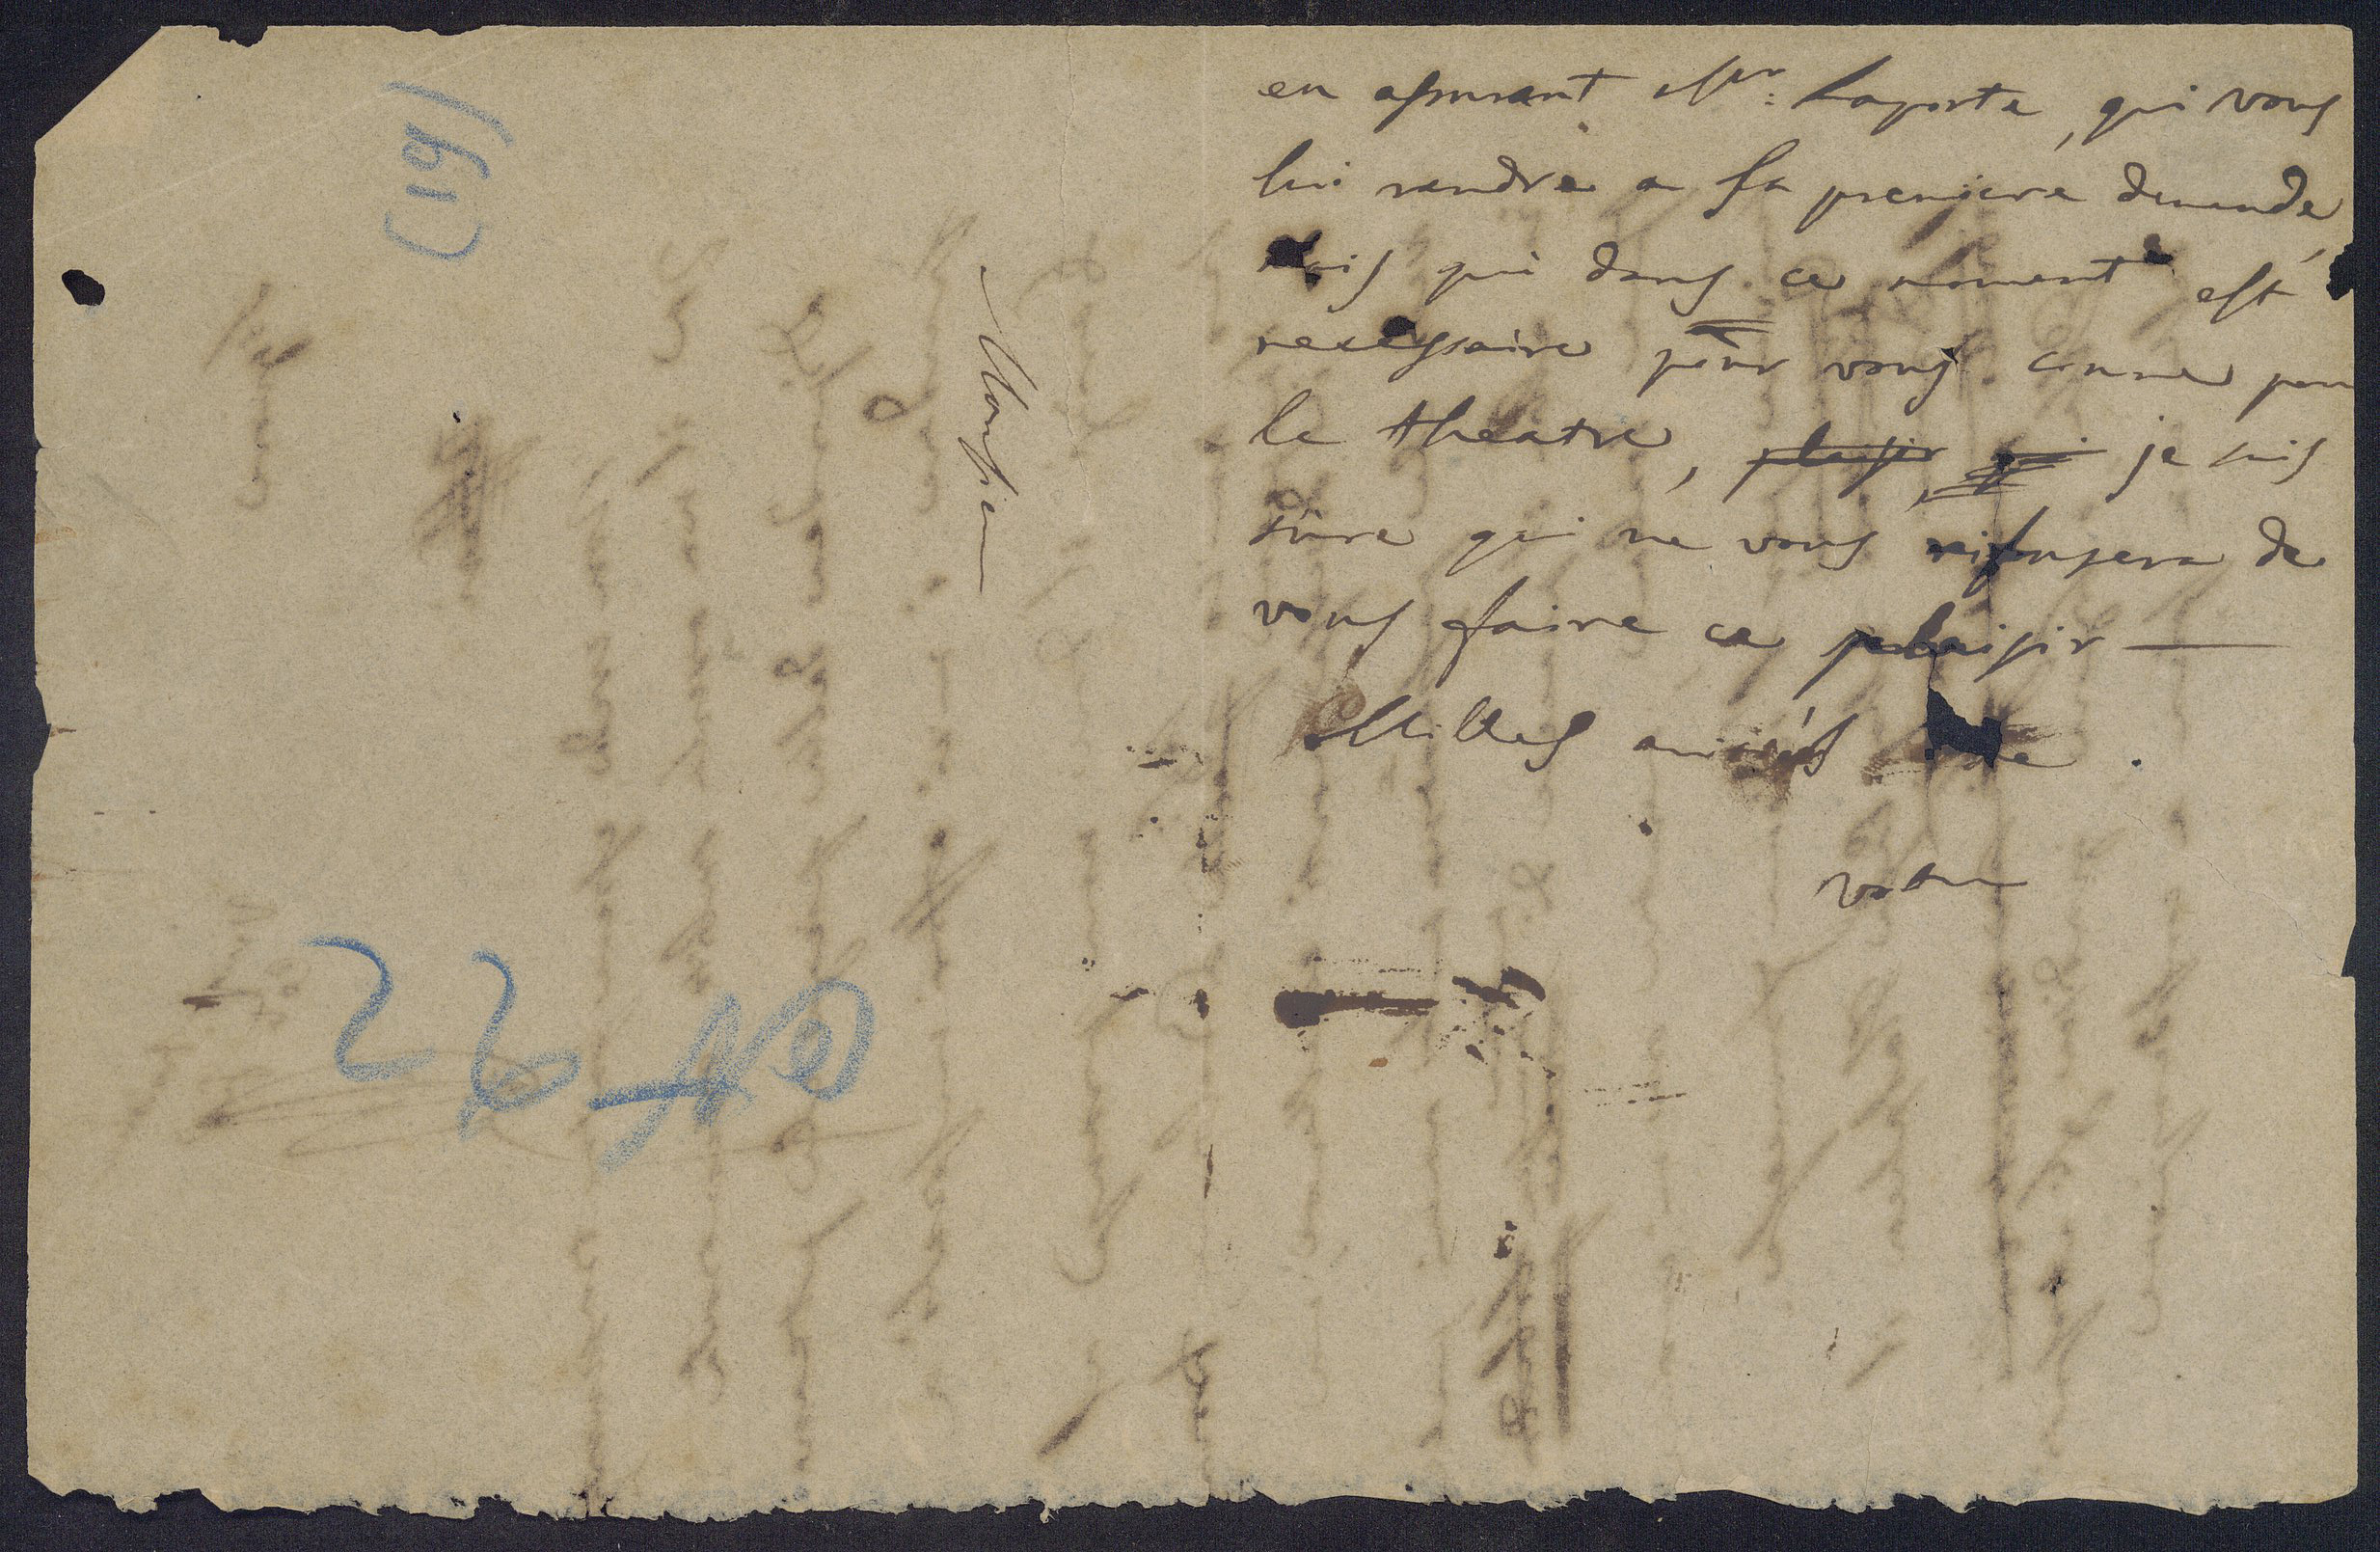 (19)
Monsieur
26
en assurant Mr: Laporte, qui vous
lui rendre a sa premiere demande,
qui dans ce moment est
necessaire pour vous comme pour
le theatre, plaisir qui je suis
sure qui ne vous refusera de
vous faire ce plaisir —
Milles amities de
votre